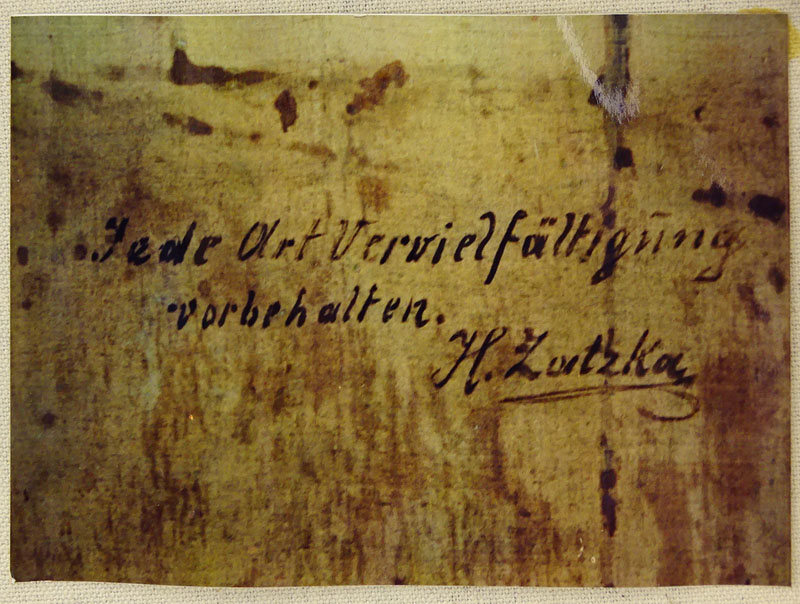 Jede Art Vervielfältigung
vorbehalten.
H. Zatzka